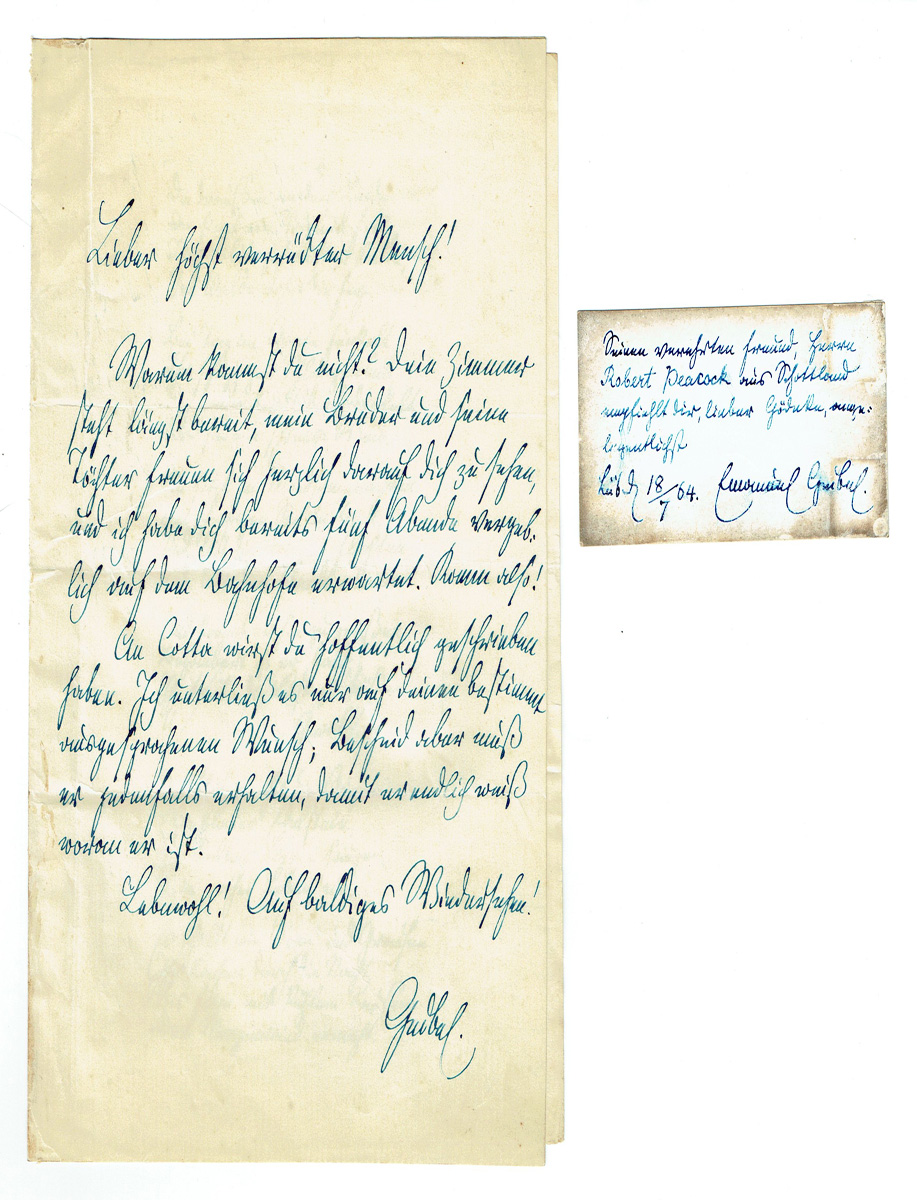 Lieber höchst verrückter Mensch!
Warum kommst du nicht? Dein Zimmer
steht längst bereit, mein Bruder und seine
Töchter freuen sich herzlich darauf dich zu sehen,
und ich habe dich bereits fünf Abende vergeb-
lich auf dem Bahnhofe erwartet. Komm also!
An Cotta wirst du hoffentlich geschrieben
haben. Ich unterließ es nur auf deinen bestimmt
ausgesprochenen Wunsch; Bescheid aber muß
er jedenfalls erhalten, damit er endlich weiß
woran er ist.
Lebewohl! Auf baldiges Wiedersehen!
Geibel.
Seinen verehrten Freund, Herrn
Robert Peacock aus Schottland
empfiehlt dir, lieber Gödeke, ange-
legentlichst
Lüb. 18/7 64. Emanuel Geibel.